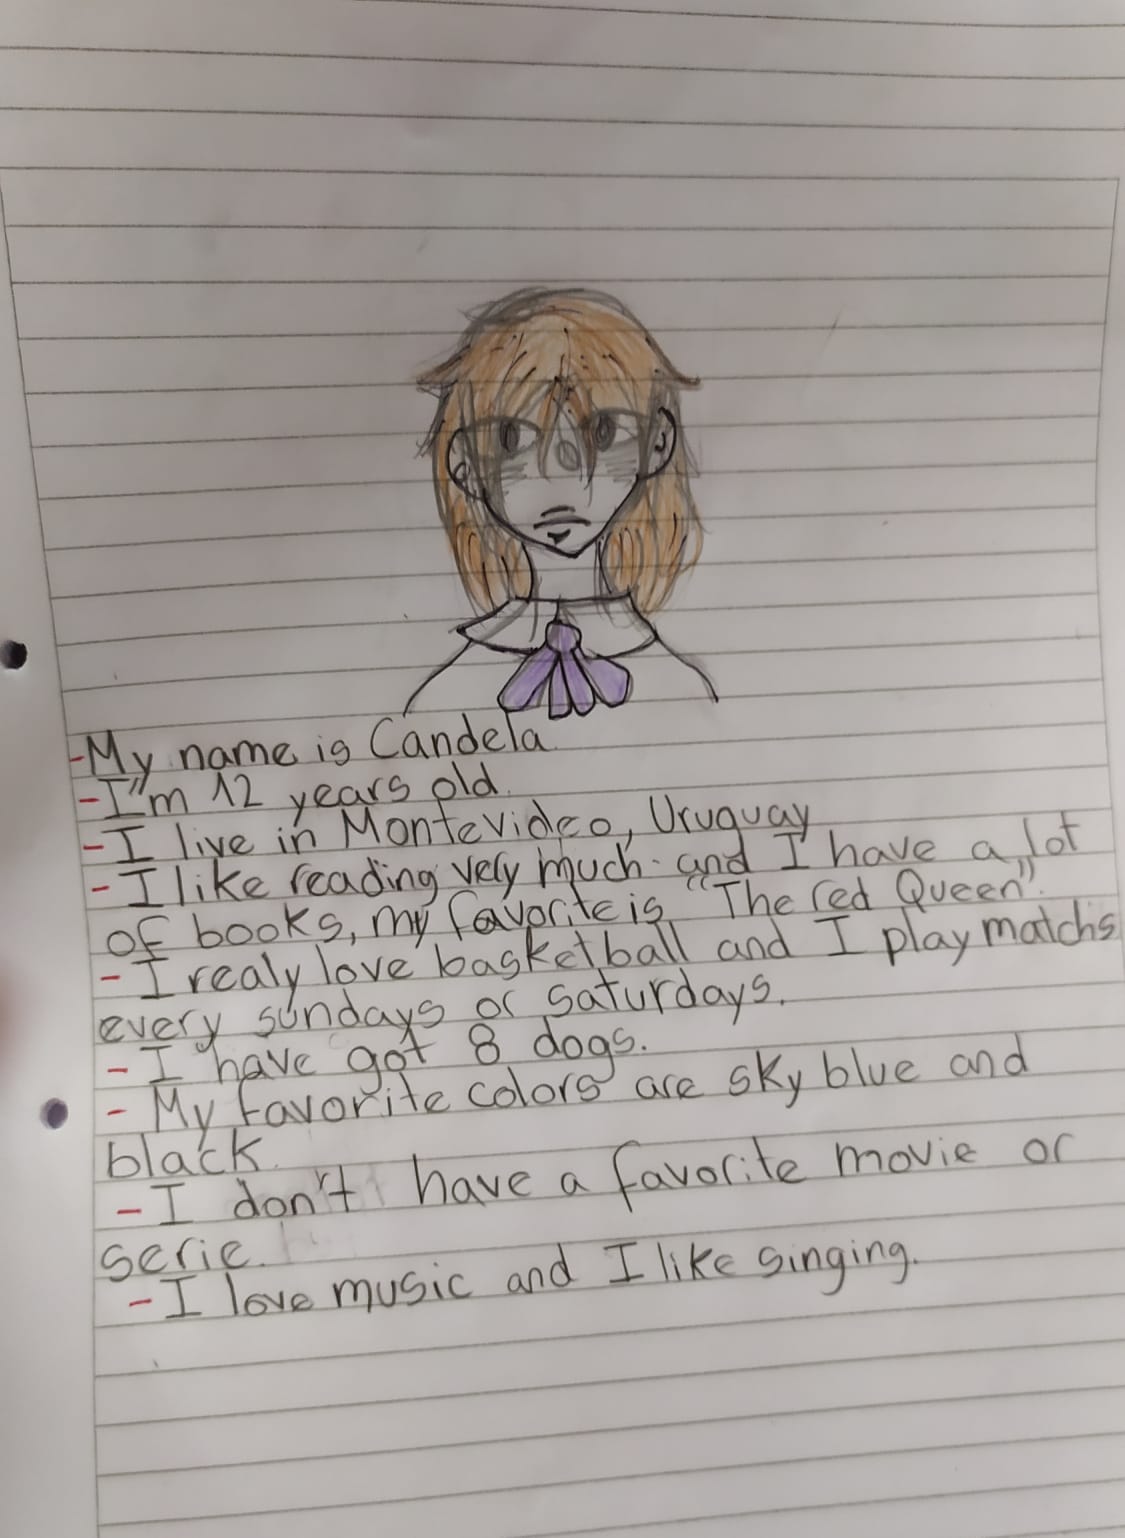 -My name is Candela
-I"m 12 years old.
-I live in Montevideo, Uruguay
-I like reading very much and I have a lot
of books, my favorite is "The red Queen".
-I realy love basketball and I play matchs
every sundays or saturdays.
-I have got 8 dogs.
-My favorite colors are sky blue and
black.
-I don't have a favorite movie or
serie.
-I love music and I like singing.